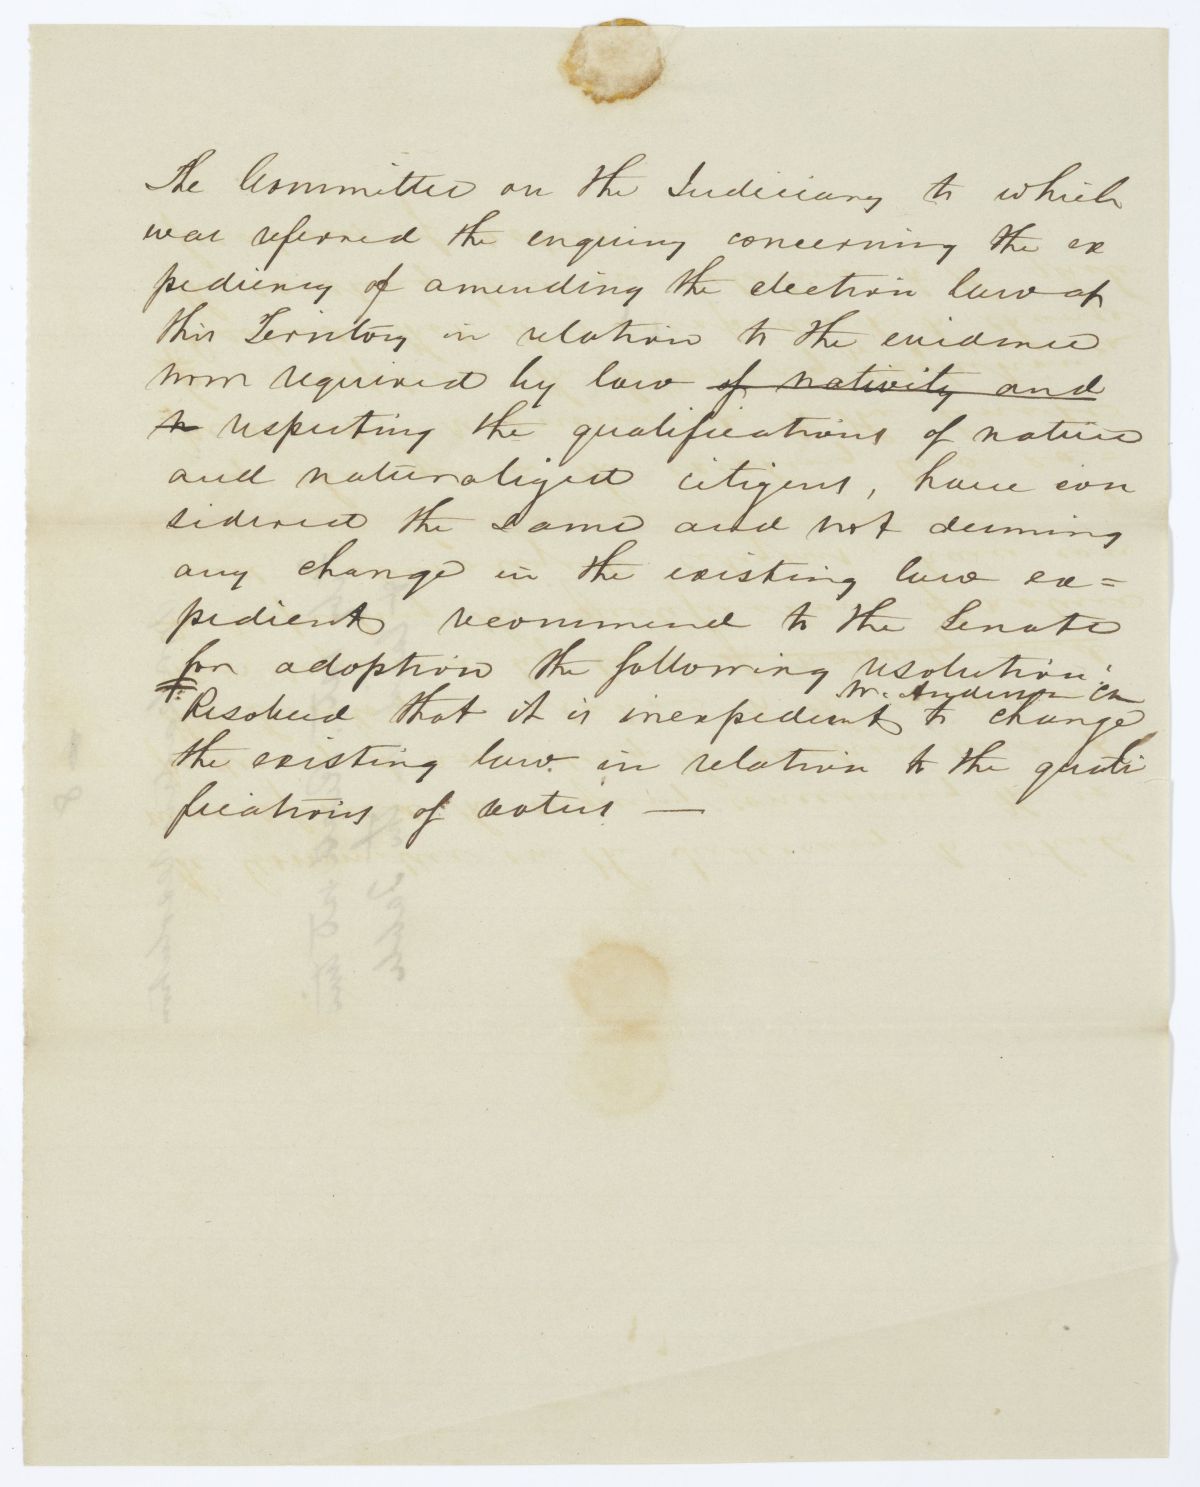 The Committee on the Judiciary to which
was referred the enquiry concerning the ex
pediency of amending the election law of
this Territory in relation to the evidence
now required by law of nativity and
to respecting the qualifications of native
and naturalized citizens, have con
sidered the same and not deeming
any change in the existing law ex=
pedient recommend to the Senate
for adoption the following resolution:
W. Anderson Ch
Resolved that it is inexpedient to change
the existing law in relation to the quali
fications of voters —